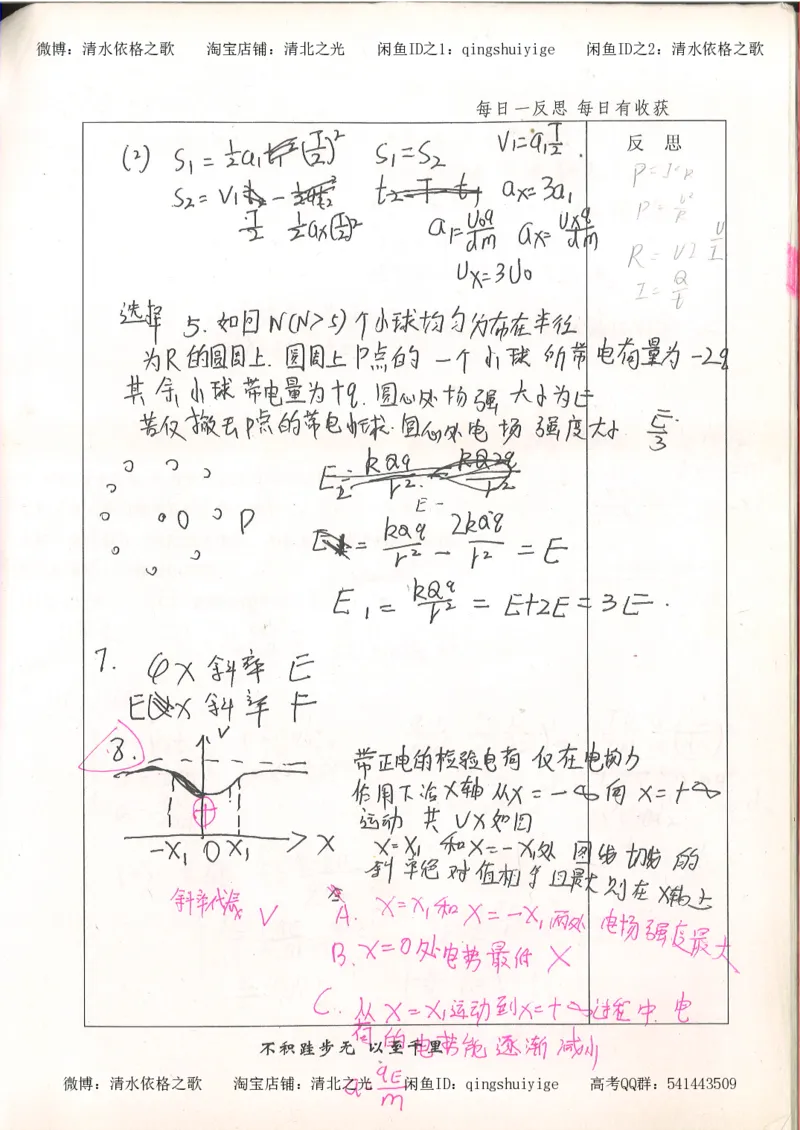 微博：清水依格之歌 淘宝店铺：清北之光 闲鱼ID之1：qingshuiyige 闲鱼ID之2：清水依格之歌
每日一反思 每日有收获
反 思
P=I²R
P=U²/R
R=U/I
I=Q/t
(2) S₁=½a₁(T/2)² S₁=S₂ V₁=a₁T/2.
S₂=V₁T/2-½aₓ(T/2)² aₓ=3a₁
a₁=U₀q/dm aₓ=Uₓq/dm
Uₓ=3U₀
选择 5. 如图 N(N>5)个小球均匀分布在半径
为R的圆周上. 圆周上P点的一个小球所带电荷量为-2q
其余小球带电量为+q. 圆心处场强大小为E
若仅撤去P点的带电小球. 圆心处电场强度大小 E/3
O P
E-
= kQq/r² - 2kQq/r² = E
E₁ = kQq/r² = E+2E = 3E.
7. φ X 斜率 E
E X 斜率 F
8. V
-X₁ O X₁ X
带正电的检验电荷 仅在电场力
作用下沿X轴从X=-∞向X=+∞
运动 其VX如图
X=X₁和X=-X₁处 图线切线的
斜率绝对值相等且最大 则在X轴上
斜率代表 V
A. X=X₁和X=-X₁两处 电场强度最大
B. X=0处电势最低 X
C. 从X=X₁运动到X=+∞过程中. 电
荷的电势能逐渐减小
不积跬步无 以至千里
a=qE/m
微博：清水依格之歌 淘宝店铺：清北之光 闲鱼ID：qingshuiyige 高考QQ群：541443509